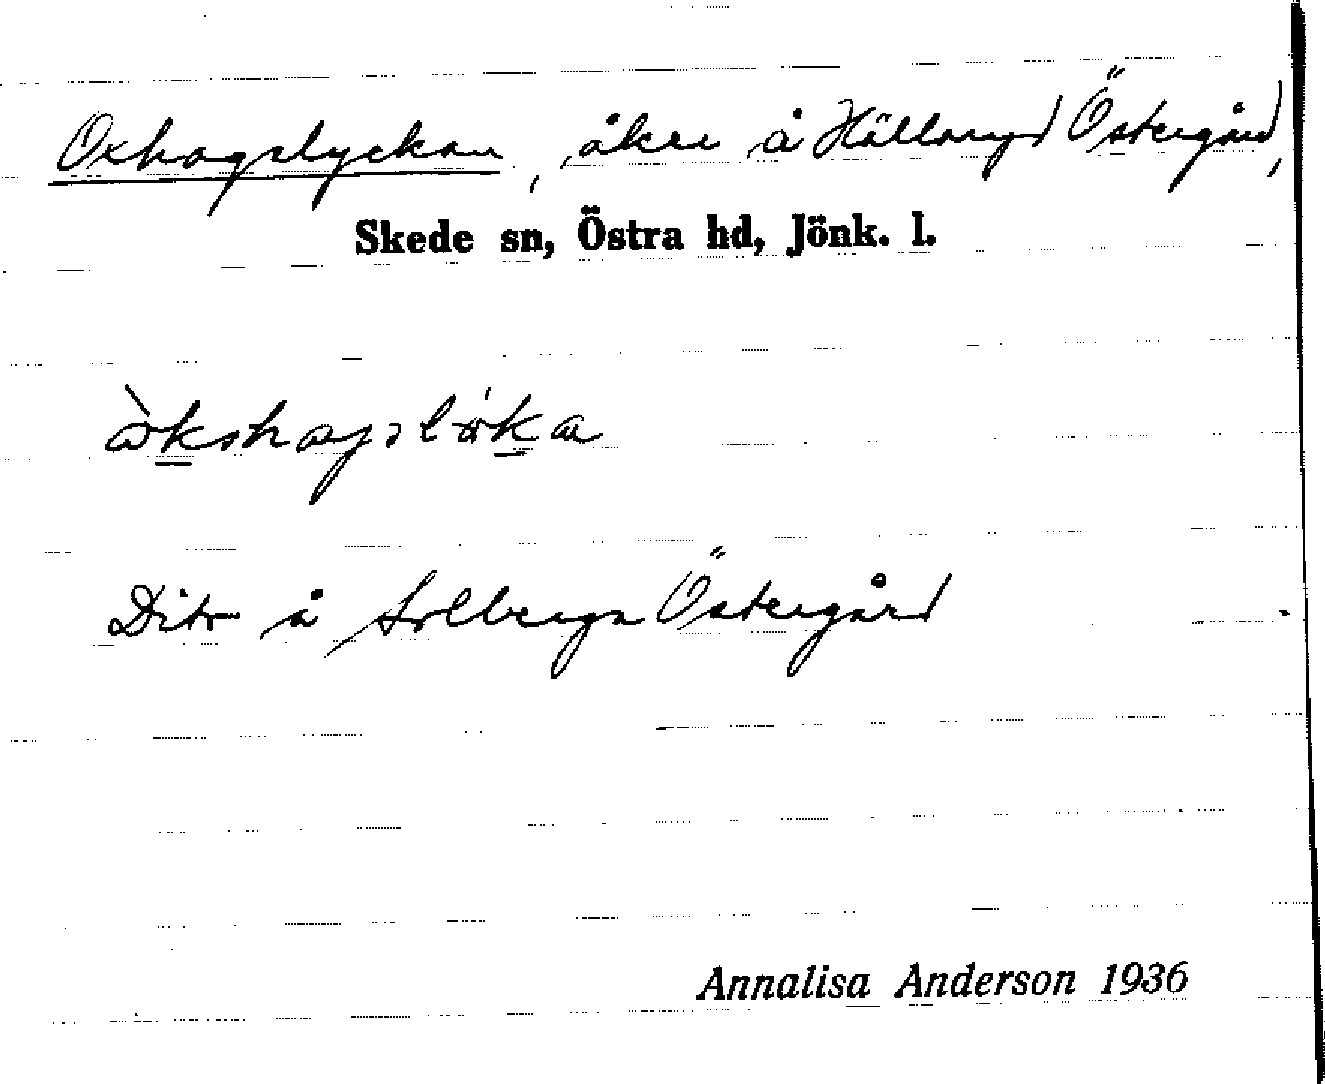 Oxhagslyckan, åker å Hällaryd Östergård,
Skede sn, Östra hd, Jönk. l.
Dito å Solberga Östergård
Annalisa Anderson 1936